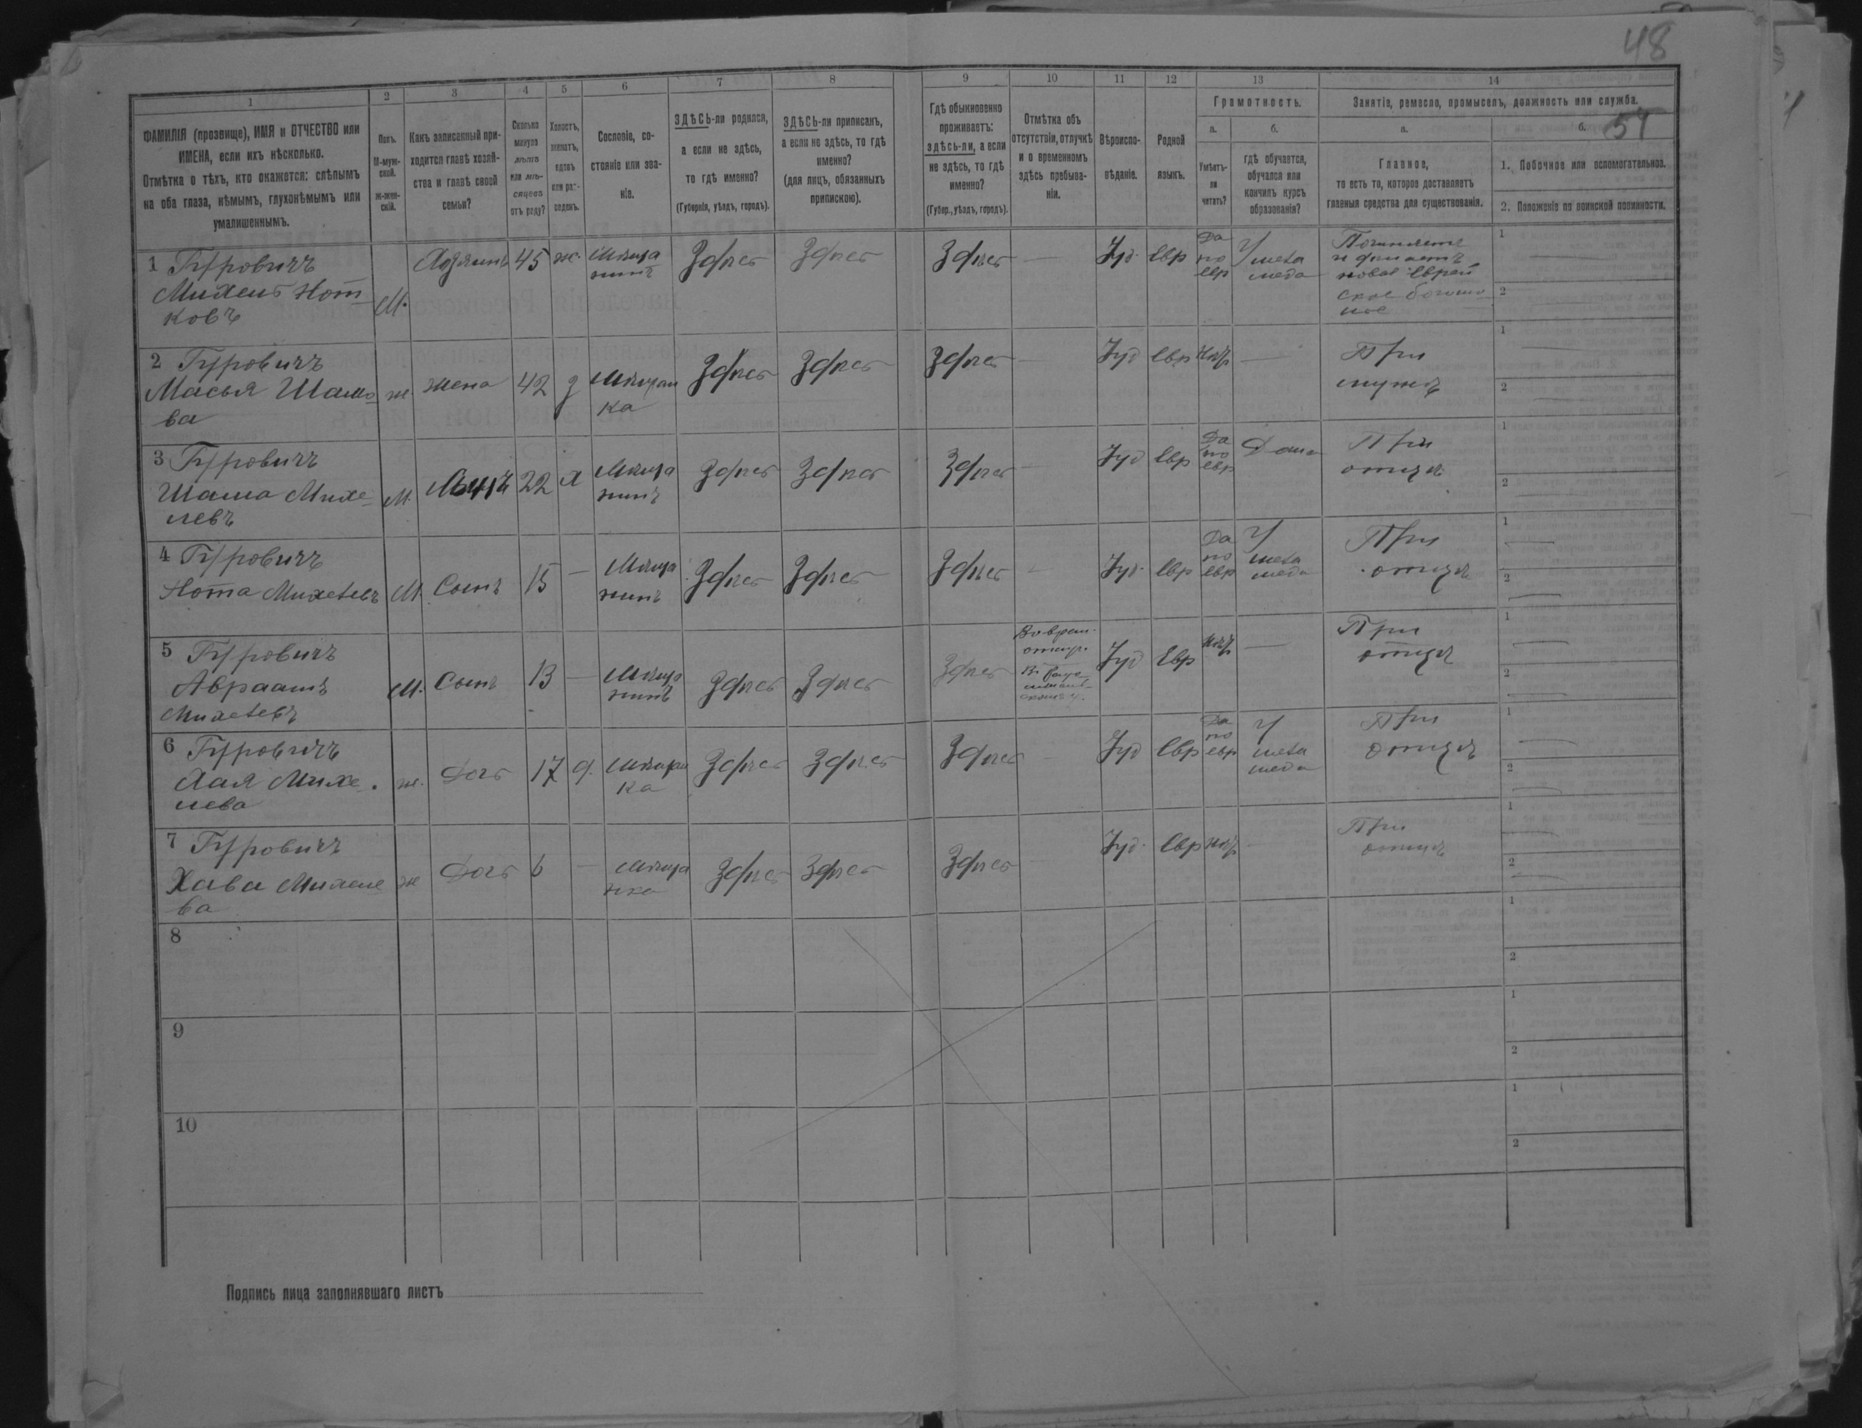 48
1 2 3 4 5 6 7 8 9 10 11 12 13 14
ФАМИЛІЯ (прозвище), ИМЯ и ОТЧЕСТВО или
ИМЕНА, если ихъ нѣсколько.
Отмѣтка о тѣхъ, кто окажется: слѣпымъ
на оба глаза, нѣмымъ, глухонѣмымъ или
умалишеннымъ.
Полъ.
М-муж-
ской.
Ж-жен-
скій.
Какъ записанный при-
ходится главѣ хозяй-
ства и главѣ своей
семьи?
Сколько
минуло
лѣтъ
или мѣ-
сяцевъ
отъ роду?
Холостъ,
женатъ,
вдовъ
или раз-
веденъ.
Сословіе, со-
стояніе или зва-
ніе.
ЗДѢСЬ-ли родился,
а если не здѣсь,
то гдѣ именно?
(Губернія, уѣздъ, городъ).
ЗДѢСЬ-ли приписанъ,
а если не здѣсь, то гдѣ
именно?
(для лицъ, обязанныхъ
припискою).
Гдѣ обыкновенно
проживаетъ:
здѣсь-ли, а если
не здѣсь, то гдѣ
именно?
(Губер., уѣздъ, городъ).
Отмѣтка объ
отсутствіи, отлучкѣ
и о временномъ
здѣсь пребыва-
ніи.
Вѣроиспо-
вѣданіе.
Родной
языкъ.
Грамотность.
а.
Умѣетъ-
ли
читать?
б.
гдѣ обучается,
обучался или
кончилъ курсъ
образованія?
Занятіе, ремесло, промыселъ, должность или служба.
а.
Главное,
то есть то, которое доставляетъ
главныя средства для существованія.
б.
1. Побочное или вспомогательное.
2. Положеніе по воинской повинности.
1 Гурровичъ
Михель Нот
ковъ
М.
Хозяинъ
45
ж.
Мѣща
нинъ
Здѣсь
Здѣсь
Здѣсь
Іуд.
Евр
Да
по
евр
У мела
меда
1
2
2 Гурровичъ
Масья Шамо
ва
ж
жена
42
з
Мѣщан
ка
Здѣсь
Здѣсь
Здѣсь
Іуд
Евр
Нѣт
При
мужѣ
1
2
3 Гурровичъ
Шама Михе
левъ
М.
Сынъ
22
х
Мѣща
нинъ
Здѣсь
Здѣсь
Здѣсь
Іуд
Евр
Да
по
евр
Дома
При
отцѣ
1
2
4 Гурровичъ
Нота Михелевъ
М
Сынъ
15
Мѣща
нинъ
Здѣсь
Здѣсь
Здѣсь
Іуд.
Евр
Да
по
евр
У
мела
меда
При
отцѣ
1
2
5 Гурровичъ
Авраамъ
Михелевъ
М.
Сынъ
13
Мѣща
нинъ
Здѣсь
Здѣсь
Здѣсь
Іуд
Евр
Нѣт
При
отцѣ
1
2
6 Гурровичъ
Хая Михе
лева
ж.
Дочь
17
д.
Мѣщан
ка
Здѣсь
Здѣсь
Здѣсь
Іуд
Евр
Да
по
евр
У
мела
меда
При
отцѣ
1
2
7 Гурровичъ
Хава Михеле
ва
ж
Дочь
6
Мѣща
нка
Здѣсь
Здѣсь
Здѣсь
Іуд.
Евр
Нѣт
При
отцѣ
1
2
8
1
2
9
1
2
10
1
2
Подпись лица заполнявшаго листъ